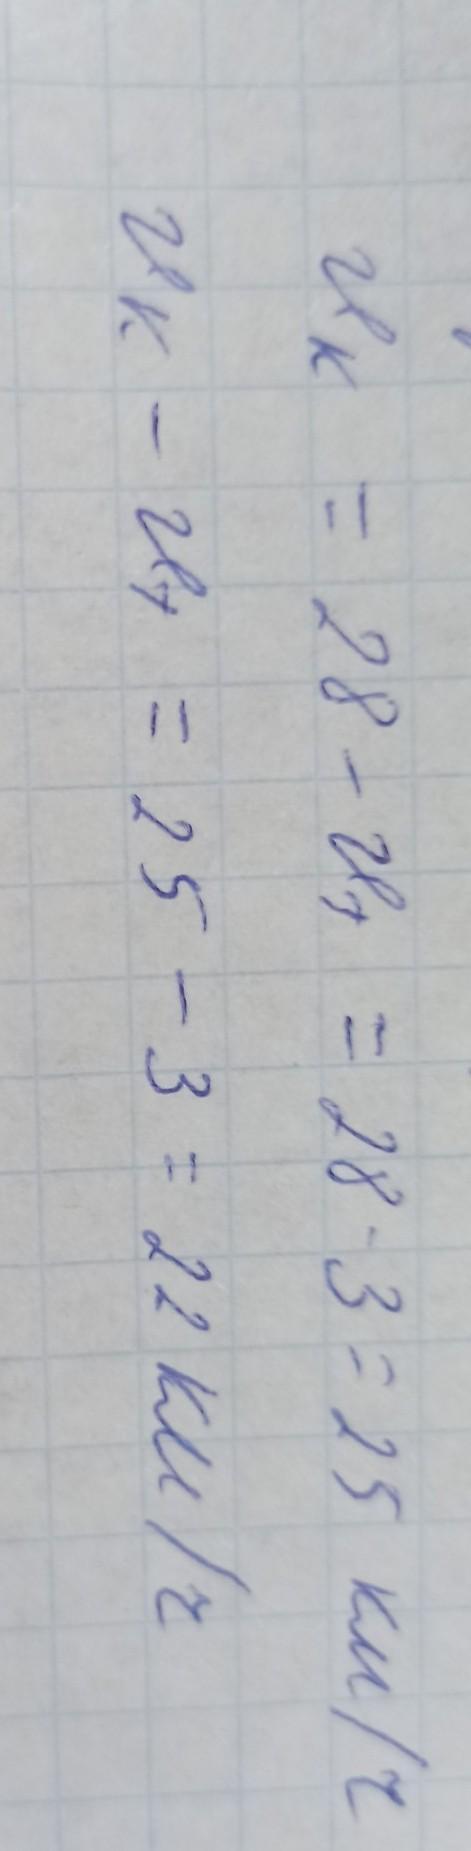 υк = 28 - υт = 28 - 3 = 25 км/ч
υк - υт = 25 - 3 = 22 км/ч